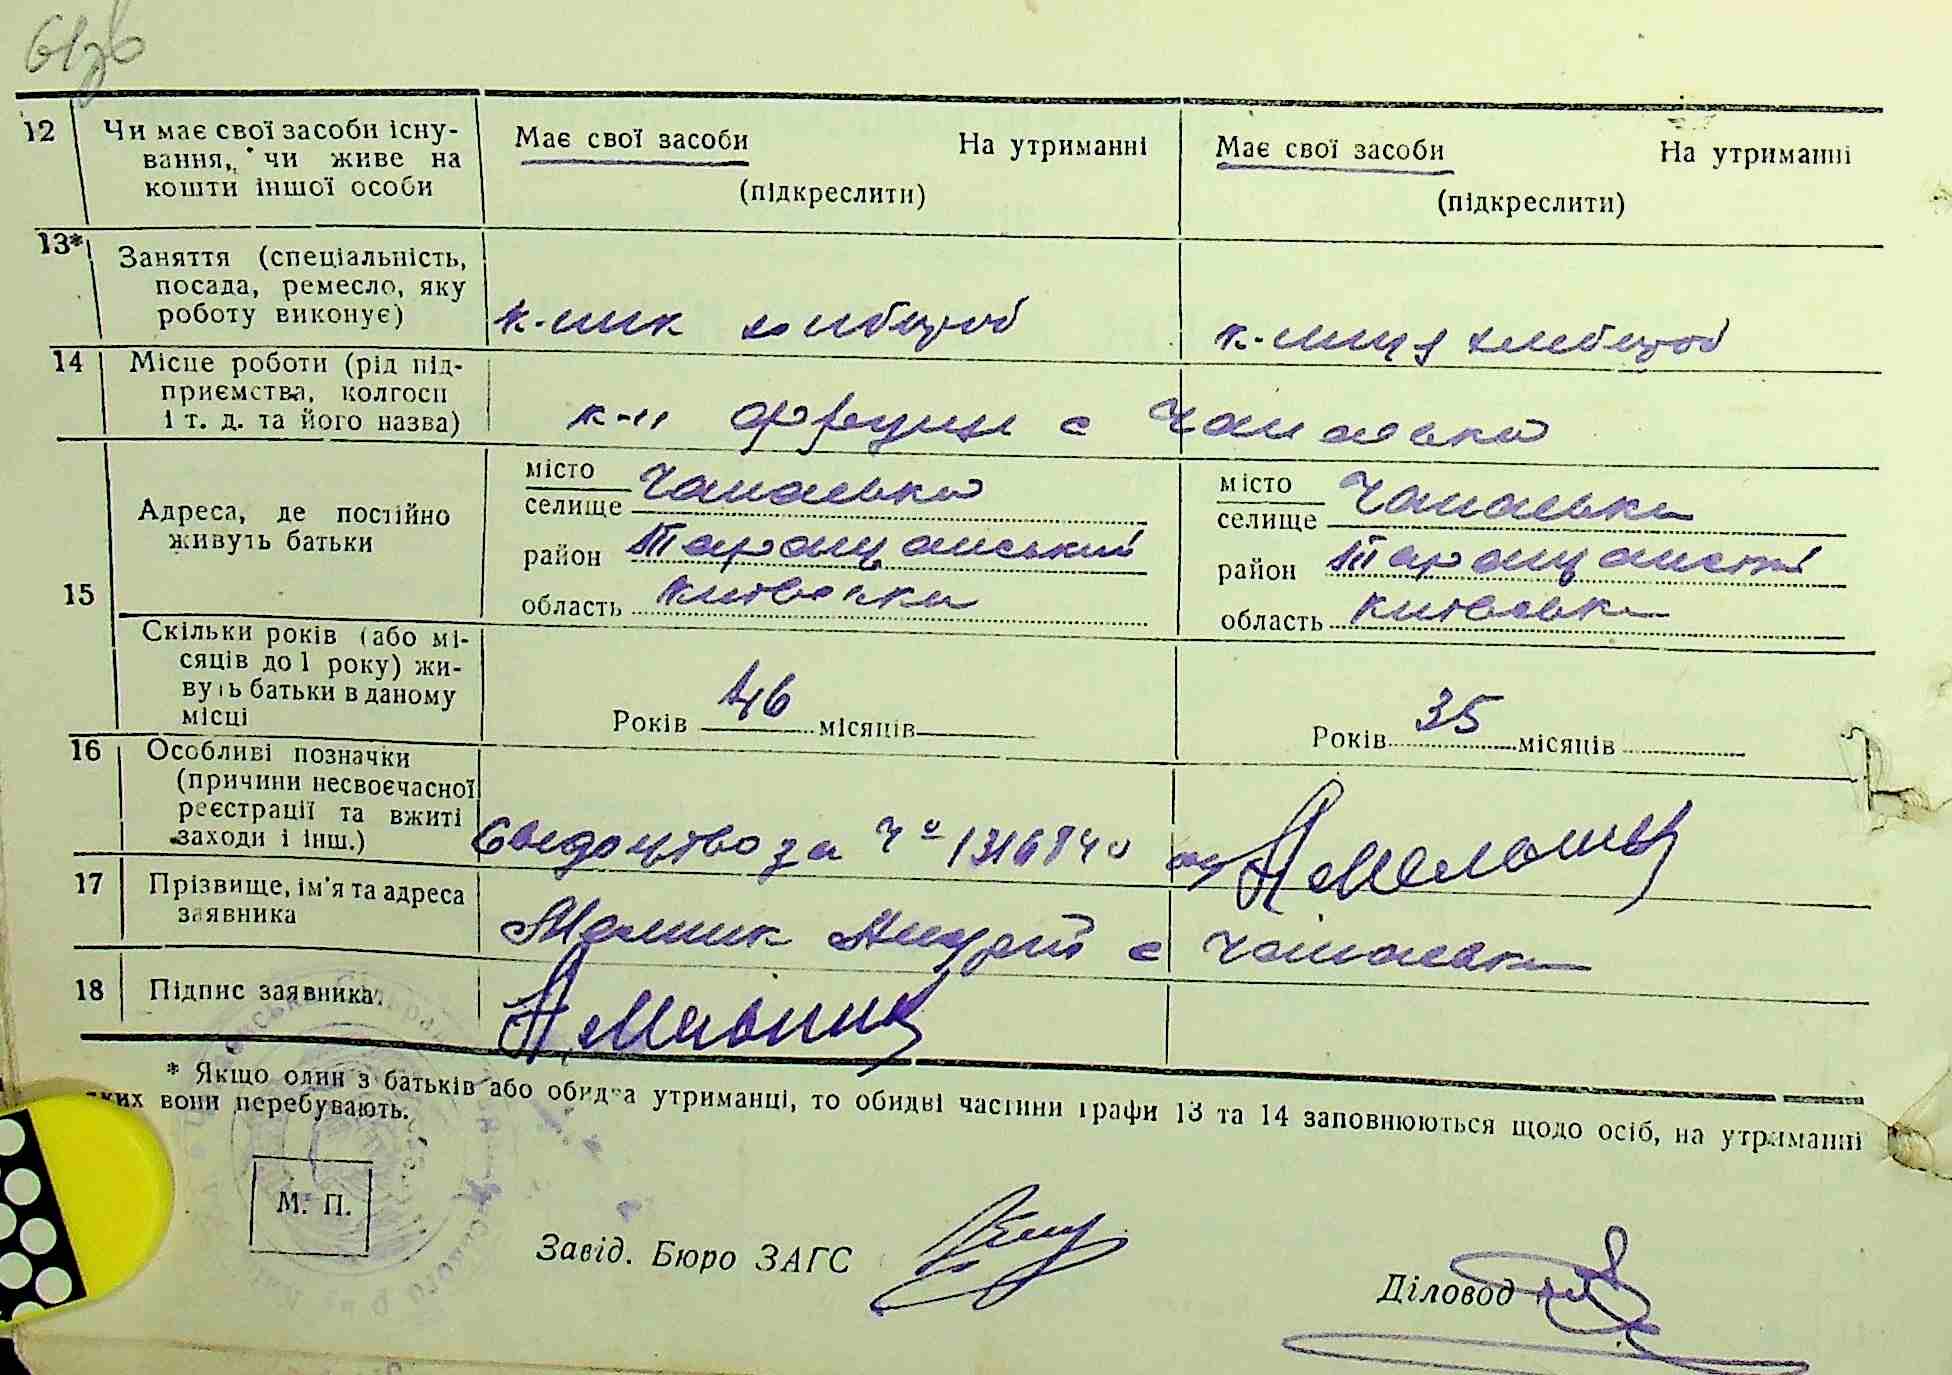 12 Чи має свої засоби існу-
вання, чи живе на
кошти іншої особи
Має свої засоби На утриманні
(підкреслити)
Має свої засоби На утриманні
(підкреслити)
13* Заняття (спеціальність,
посада, ремесло, яку
роботу виконує)
к-ник хлібороб
к-ниця хлібороб
14 Місце роботи (рід під-
приємства, колгосп
і т. д. та його назва)
к-п Фрунзе с Чапаєвка
15
Адреса, де постійно
живуть батьки
місто
селище Чапаєвка
район Таращанський
область Київська
місто
селище Чапаєвка
район Таращанский
область Київська
Скільки років (або мі-
сяців до 1 року) жи-
вуть батьки в даному
місці
Років 46 місяців
Років 35 місяців
16 Особливі позначки
(причини несвоєчасної
реєстрації та вжиті
заходи і інш.)
Свідоцтво за № 1316840
17 Прізвище, ім'я та адреса
заявника
Мельник Андрей с Чапаєвка
18 Підпис заявника
А Мельник
* Якщо один з батьків або обидва утриманці, то обидві частини графи 13 та 14 заповнюються щодо осіб, на утриманні
яких вони перебувають.
М. П.
Завід. Бюро ЗАГС
Діловод